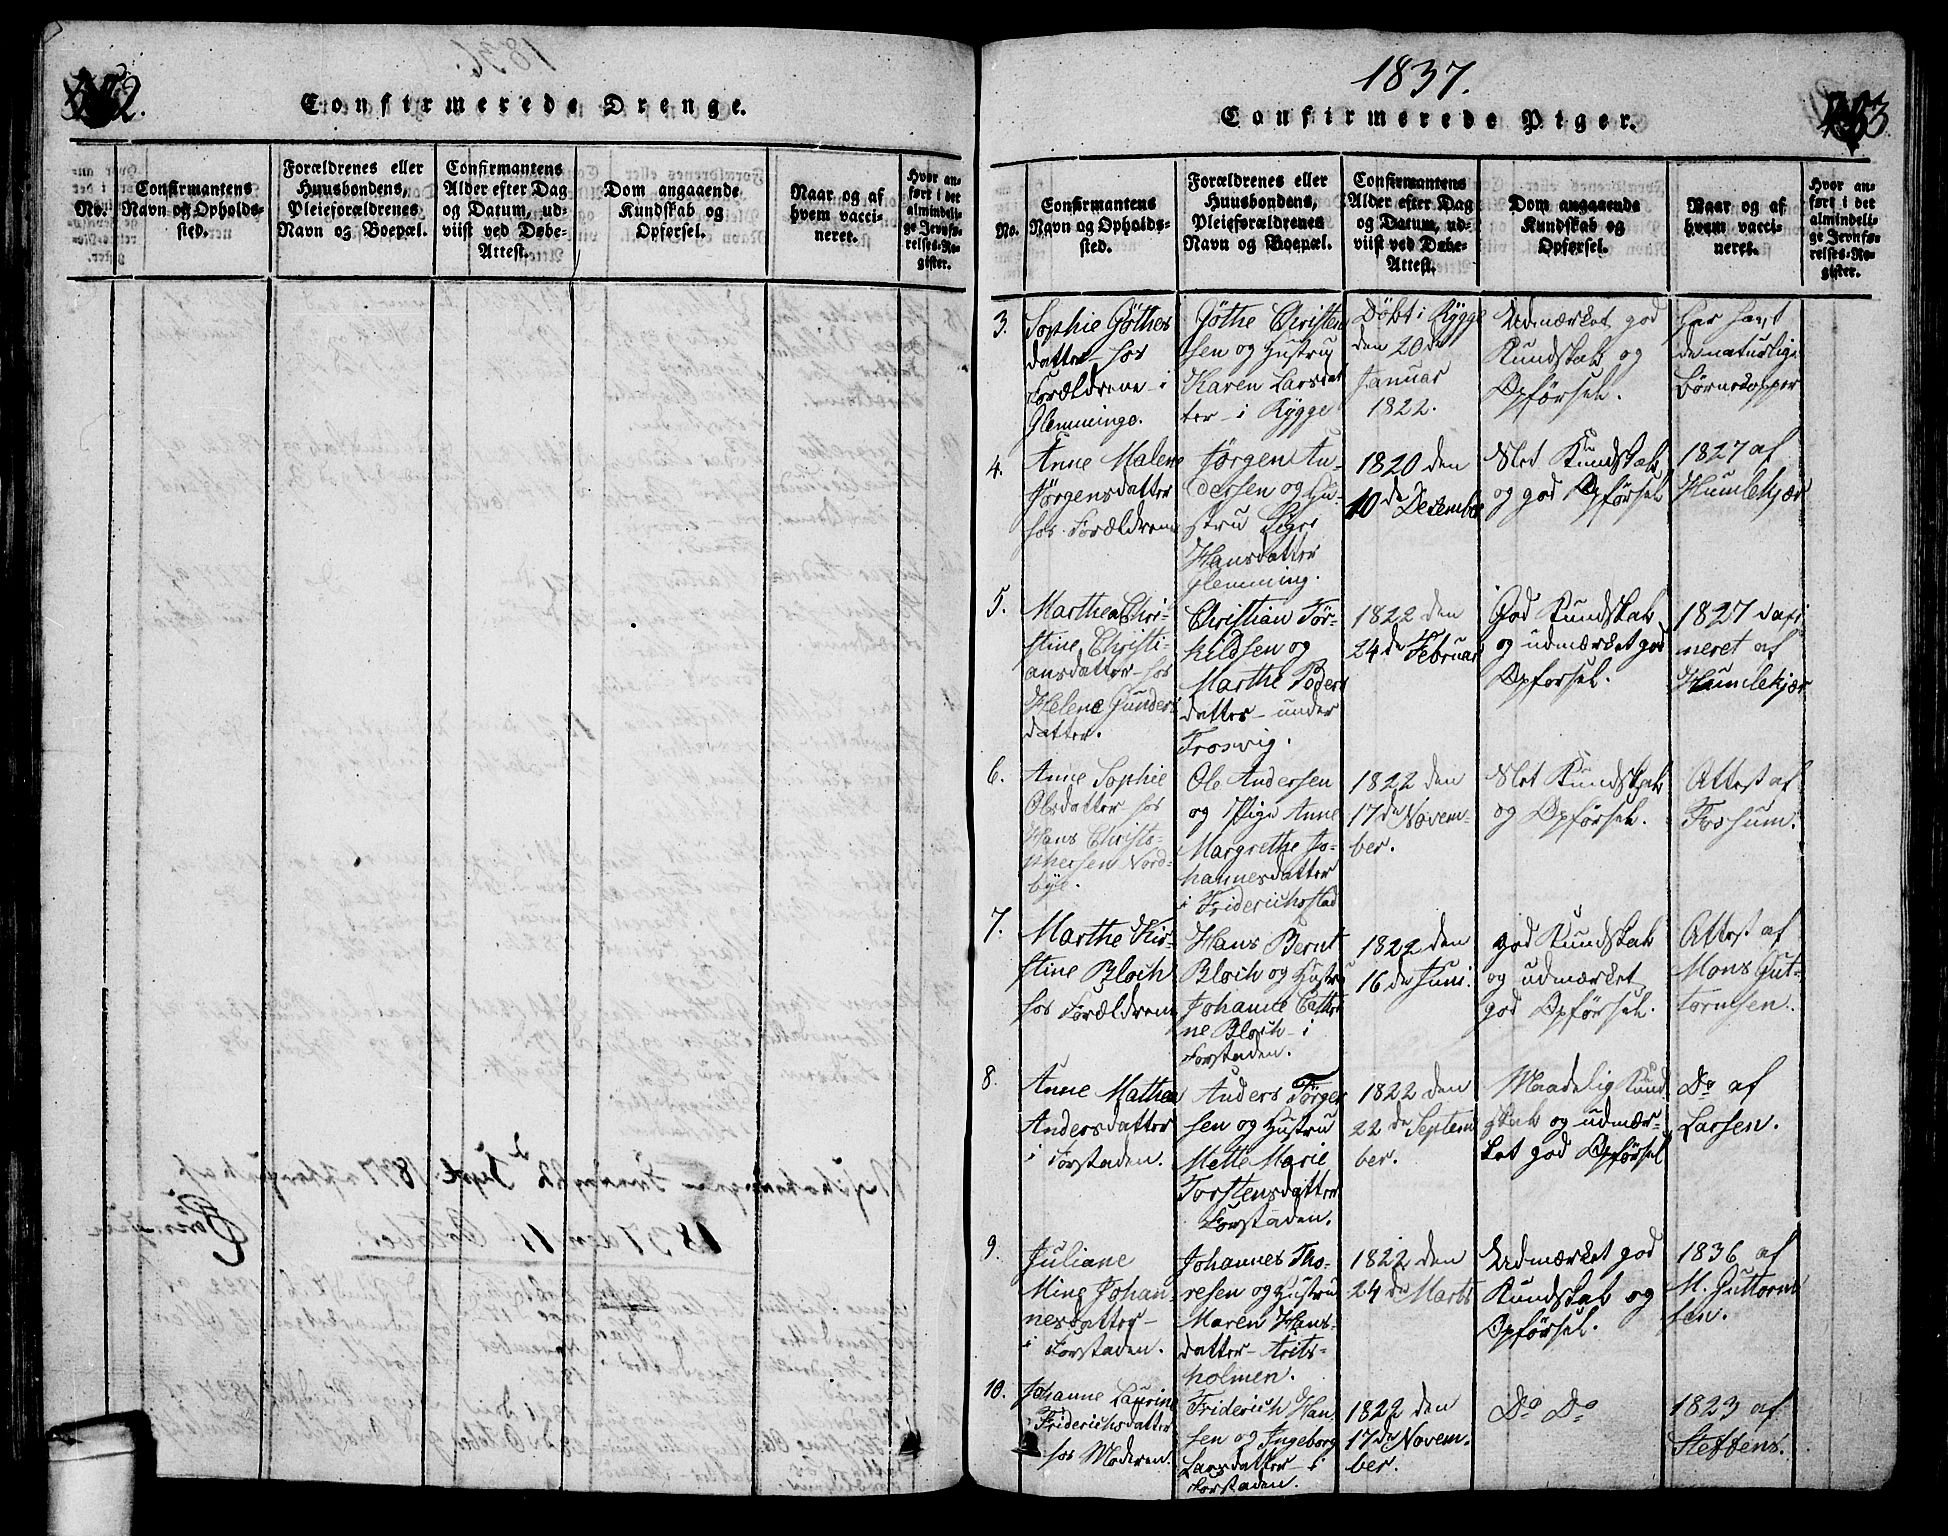 2.
Confirmerede Drenge.
No.
Confirmantens
Navn og Opholds-
sted.
Forældrenes eller
Huusbondens,
Pleieforældrenes
Navn og Boepæl.
Confirmantens
Alder efter Dag
og Datum, ud-
viist ved Døbe-
Attest.
Dom angaaende
Kundskab og
Opførsel.
Naar og af
hvem vacci-
neret.
Hvor an-
ført i det
almindeli-
ge Jevnfø-
relses-Re-
gister.
1837.
3
Confirmerede Piger.
No.
Confirmantens
Navn og Opholds-
sted.
Forældrenes eller
Huusbondens,
Pleieforældrenes
Navn og Boepæl.
Confirmantens
Alder efter Dag
og Datum, ud-
viist ved Døbe-
Attest.
Dom angaaende
Kundskab og
Opførsel.
Naar og af
hvem vacci-
neret.
Hvor an-
ført i det
almindeli-
ge Jevnfø-
relses-Re-
gister.
3.
Sophie Gøthes
datter hos
Forældrene i
Glemminge.
Gøthe Christen
sen og Hustru
Karen Larsdat
ter i Rygge
Døbt i Rygge
den 20de
Januar
1822.
Udmærket god
Kundskab og
Opførsel.
Har havt
de naturlige
Børnekopper
4.
Anne Malene
Jørgensdatter
hos Forældrene
Jørgen An-
dersen og Hu-
stru Sigri
Hansdatter
Glemming.
1820 den
10de Desember
Slet Kundskab
og god Opførsel
1827 af
Humlekjær
5.
Marthea Chri-
stine Christi-
ansdatter hos
Helene Gunders
datter.
Christian Tør-
kildsen og
Marthe Peders
datter under
Trosvig.
1822 den
24de Februar
God Kundskab
og udmærket god
Opførsel.
1827 vaxi
neret af
Humlekjær
6.
Anne Sophie
Olsdatter hos
Hans Christo-
phersen Nord-
bye.
Ole Andersen
og Pige Anne
Margrethe Jo-
hannesdatter
i Friderichsstad
1822 den
17de Novem-
ber.
Slet Kundskab
og Opførsel.
Attest af
Fossum.
7.
Marthe Kir-
stine Bloch
hos Forældrene
Hans Bernt
Bloch og Hustru
Johanne Cathri
ne Bloch i
Forstaden.
1822 den
16de Juni.
god Kundskab
og udmærket
god Opførsel.
Attest af
Mons Gut-
tormsen.
8.
Anne Mathea
Andersdatter
i Forstaden.
Anders Tørger
sen og Hustru
Mette Marie
Torstensdatter
Forstaden.
1822 den
22de Septem
ber.
Maadelig Kund
skab og udmær-
ket god Opførsel
Do af
Larsen.
9.
Juliane
Mine Johan-
nesdatter
i Forstaden.
Johannes Tho-
resen og Hustru
Maren Hans-
datter
holmen.
1822 den
24de Marts
Udmærket god
Kundskab og
Opførsel.
1836 af
M. Guttorm
sen.
10.
Johanne Laurine
Friderichsdatter
hos Moderen.
Friderich Han
sen og Ingeborg
Larsdatter i
Forstaden.
1822 den
17de Novem-
ber.
Do Do
1823 af
Steffens.